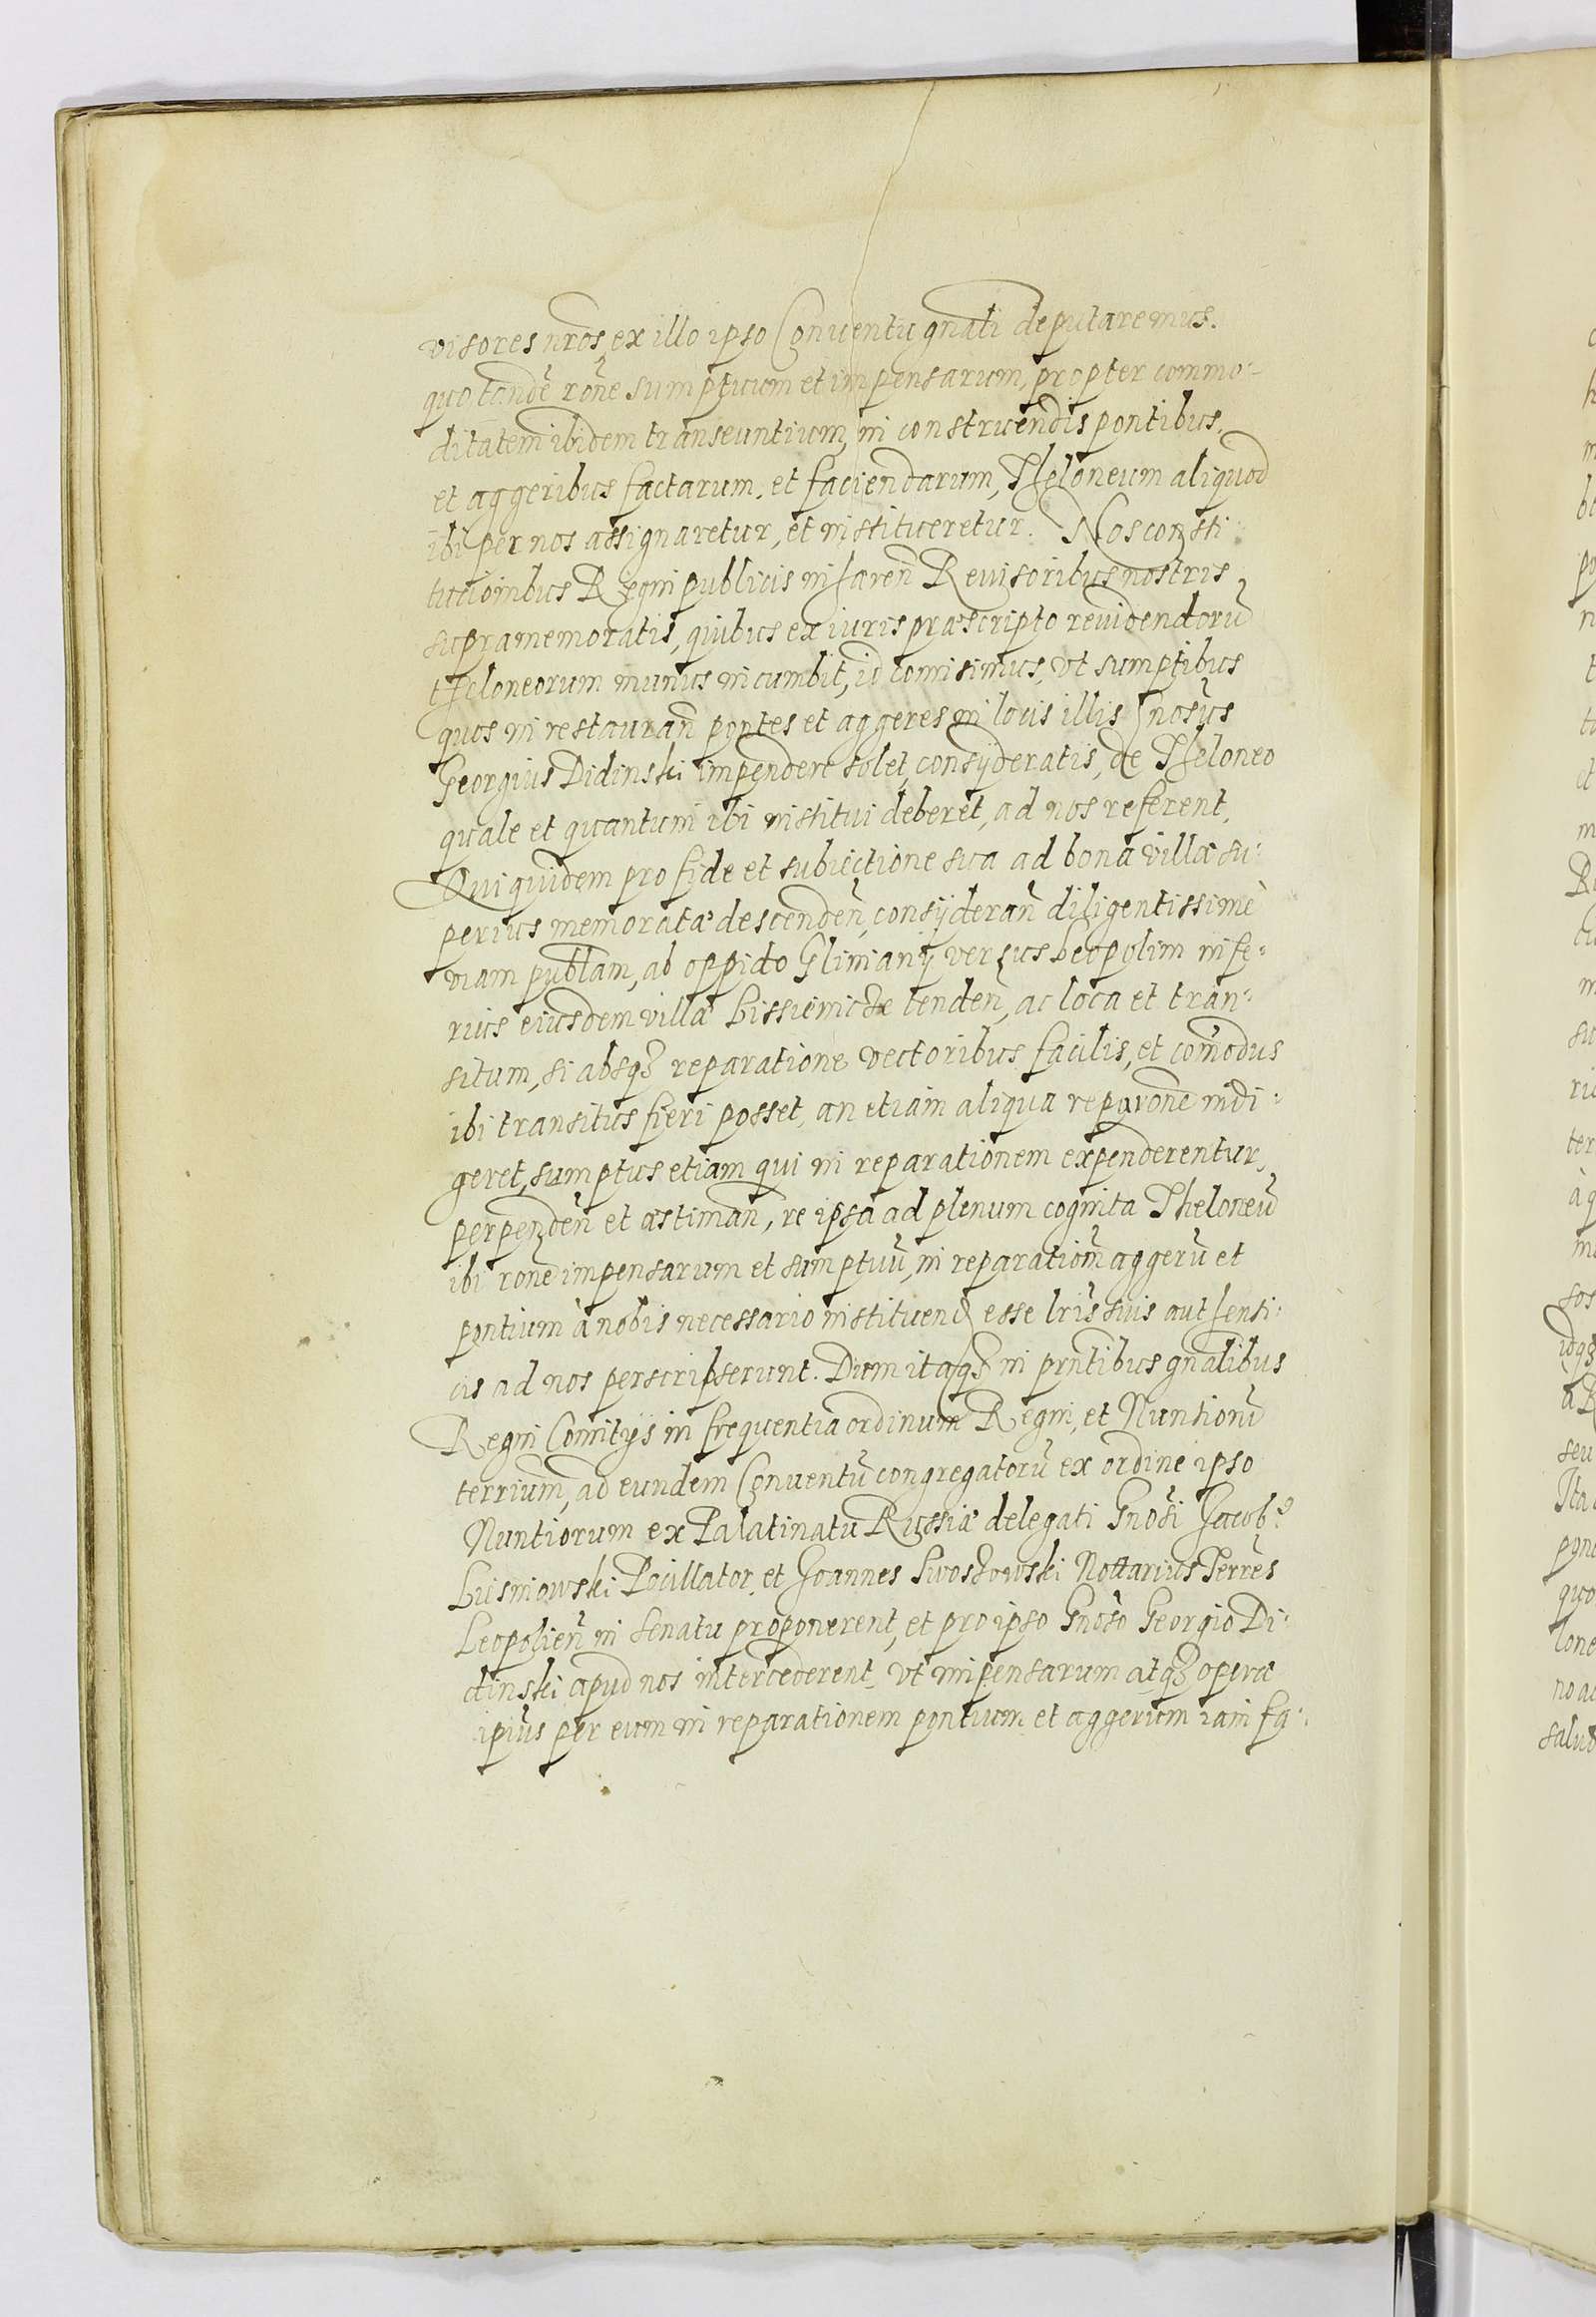 visores nros, ex illo ipso Conventu gnali deputaremus.
quo tandē rōne sumptuum et impensarum, propter commo-
ditatem ibidem transeuntium, in construendis pontibus,
et aggeribus factarum, et faciendarum, Theloneum aliquod
ibi per nos assignaretur, et institueretur. Nos consti-
tutioinbus Regni publicis inhæren̄ Reuisoribus nostris
supramemoratis, quibus ex iuris præscripto reuidendorū
theloneorum munus incumbit, id comisimus, vt sumptibus
quos in restauran̄ pontes et aggeres in locis illis Gnosus
Georgius Didinski impendere solet, consyderatis, de Theloneo
quale et quantum ibi institui deberet, ad nos referent,
Qui quidem pro fide et subiectione sua ad bona villæ su-
perius memoratæ descenden̄, consyderan̄ diligentissimè
viam publam, ab oppido Gliniany versus Leopolim infe-
rius eiusdem villæ Lissienicze tenden̄, ac loca et tran-
situm, si absq3 reparatione vectoribus facilis, et com̄odus
ibi transitus fieri posset, an etiam aliqua reparone indi-
geret, sumptus etiam qui in reparationem expenderentur,
perpenden̄ et æstiman̄, re ipsa ad plenum cognita Theloneū
ibi rone impensarum et sumptuū, in reparationē aggerū et
pontium à nobis necessario instituend esse lris suis authenti-
cis ad nos perscripserunt. Dum itaq3 in prntibus gnalibus
Regni Comitys in frequentia ordinum Regni, et Nuntiorū
terrium, ad eundem Conuentū congregatorū ex ordine ipso
Nuntiorum ex Palatinatu Russiæ delegati Gnosi Jacob9
Lusniowski Pocillator, et Joannes Swoszowski Nottarius Terrēs
Leopolien̄ in Senatu proponerent, et pro ipso Gnoso Georgio Di-
dinski apud nos intercederent, vt impensarum atq3 operæ
ipius per eum in reparationem pontium et aggerum iam fa-